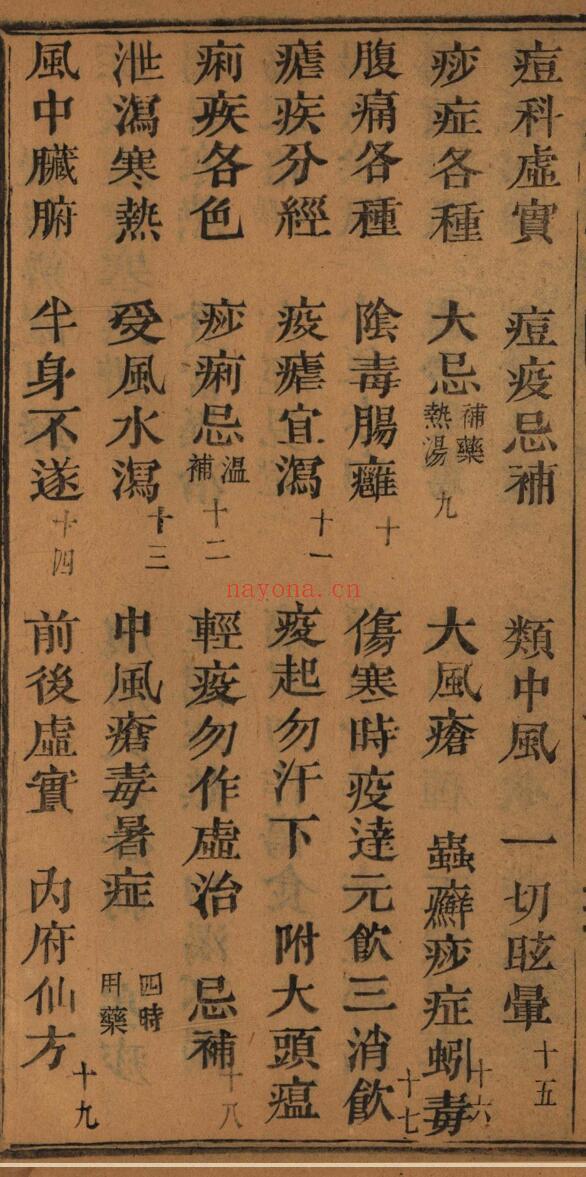 痘科虛實 痘疫忌補
痧症各種 大忌補藥熱湯 九
腹痛各種 陰毒腸癰 十
瘧疾分經 疫瘧宜瀉 十一
痢疾各色 痧痢忌溫補 十二
泄瀉寒熱 受風水瀉 十三
風中臟腑 半身不遂 十四
類中風 一切眩暈 十五
大風瘡 蟲癬痧症蚓毒 十六
傷寒時疫達元飲三消飲 十七
疫起勿汗下 附大頭瘟
輕疫勿作虛治 忌補 十八
中風瘡毒暑症 四時用藥
前後虛實 內府仙方 十九
nayona.cn